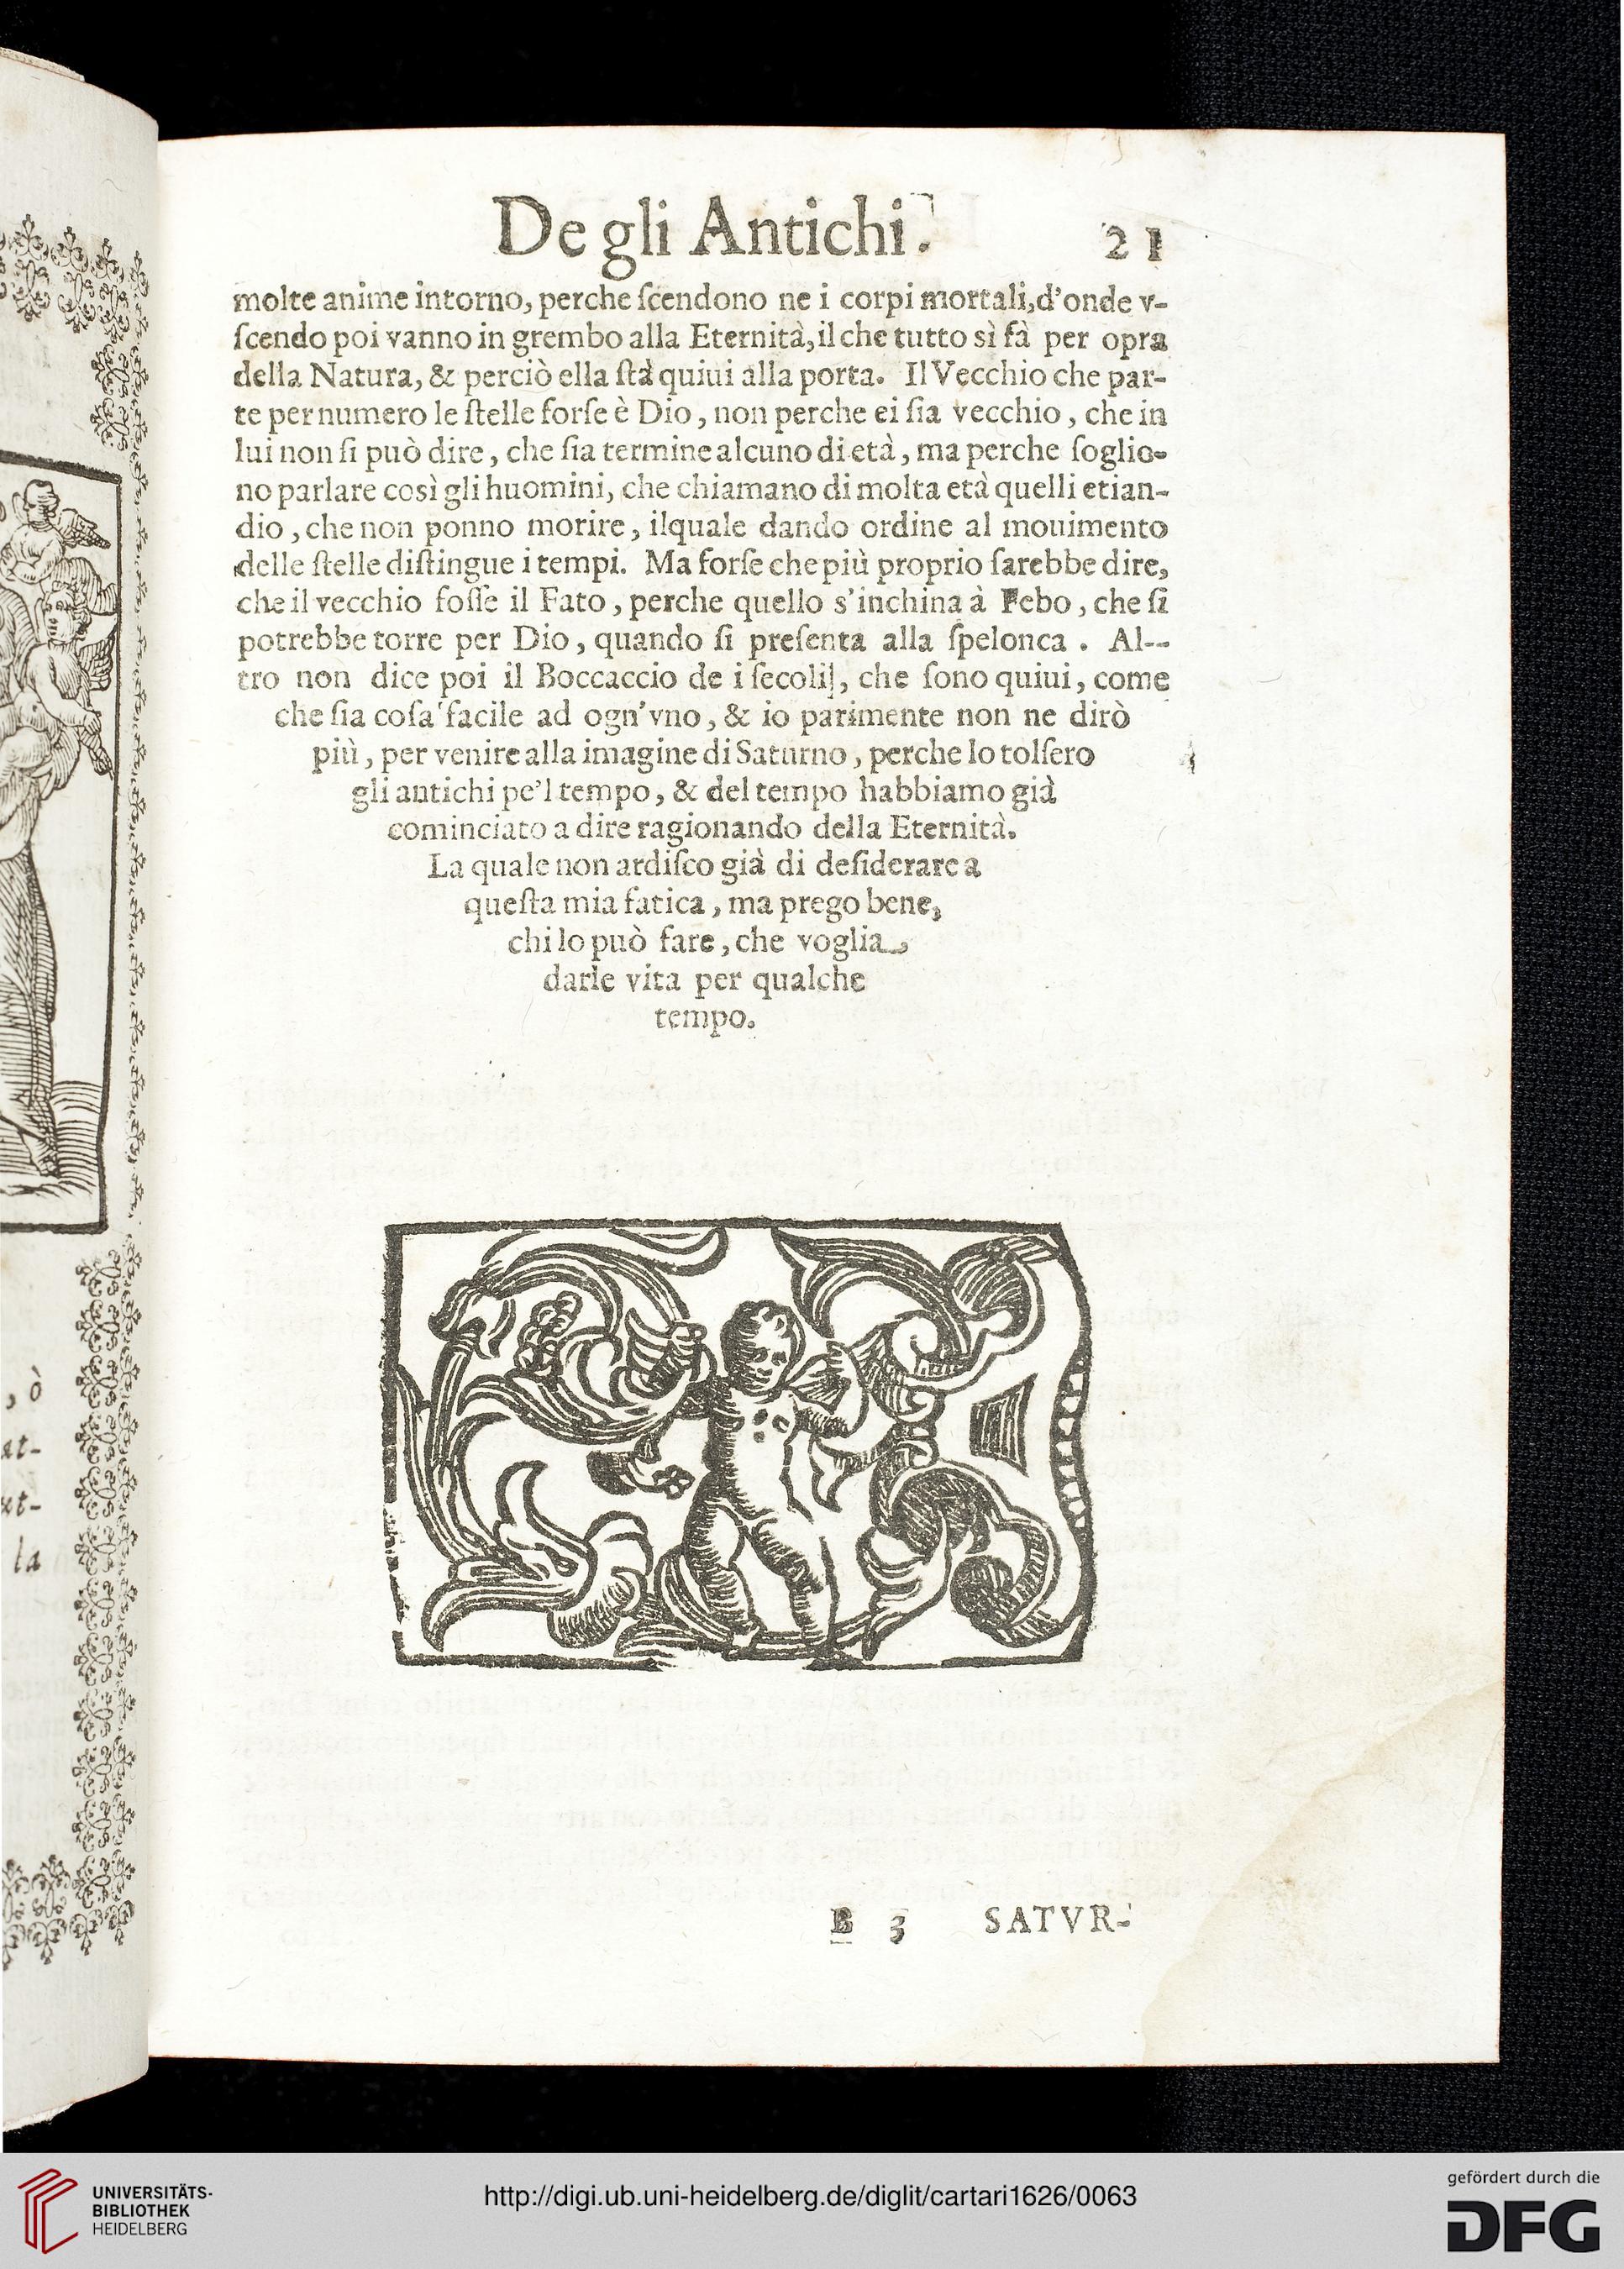 De gli Antichi. 21
molte anime intorno, perche ſcendono ne i corpi mortali, d'onde v-
ſcendo poi vanno in grembo alla Eternità, il che tutto sì fà per opra
della Natura, & perciò ella ſtà quiui alla porta. Il Vecchio che par-
te per numero le ſtelle forſe è Dio, non perche ei ſia vecchio, che in
lui non ſi può dire, che ſia termine alcuno di età, ma perche ſoglio-
no parlare così gli huomini, che chiamano di molta età quelli etian-
dio, che non ponno morire, ilquale dando ordine al mouimento
delle ſtelle diſtingue i tempi. Ma forſe che più proprio ſarebbe dire,
che il vecchio foſſe il Fato, perche quello s'inchina à Febo, che ſi
potrebbe torre per Dio, quando ſi preſenta alla ſpelonca. Al--
tro non dice poi il Boccaccio de i ſecoli, che ſono quiui, come
che ſia coſa facile ad ogn'vno, & io parimente non ne dirò
più, per venire alla imagine di Saturno, perche lo tolſero
gli antichi pe'l tempo, & del tempo habbiamo già
cominciato a dire ragionando della Eternità.
La quale non ardiſco già di deſiderare a
queſta mia fatica, ma prego bene,
chi lo può fare, che voglia
darle vita per qualche
tempo.
B 3 SATVR-
, ò
at-
ut-
la
UNIVERSITÄTS-
BIBLIOTHEK
HEIDELBERG
http://digi.ub.uni-heidelberg.de/diglit/cartari1626/0063
gefördert durch die
DFG